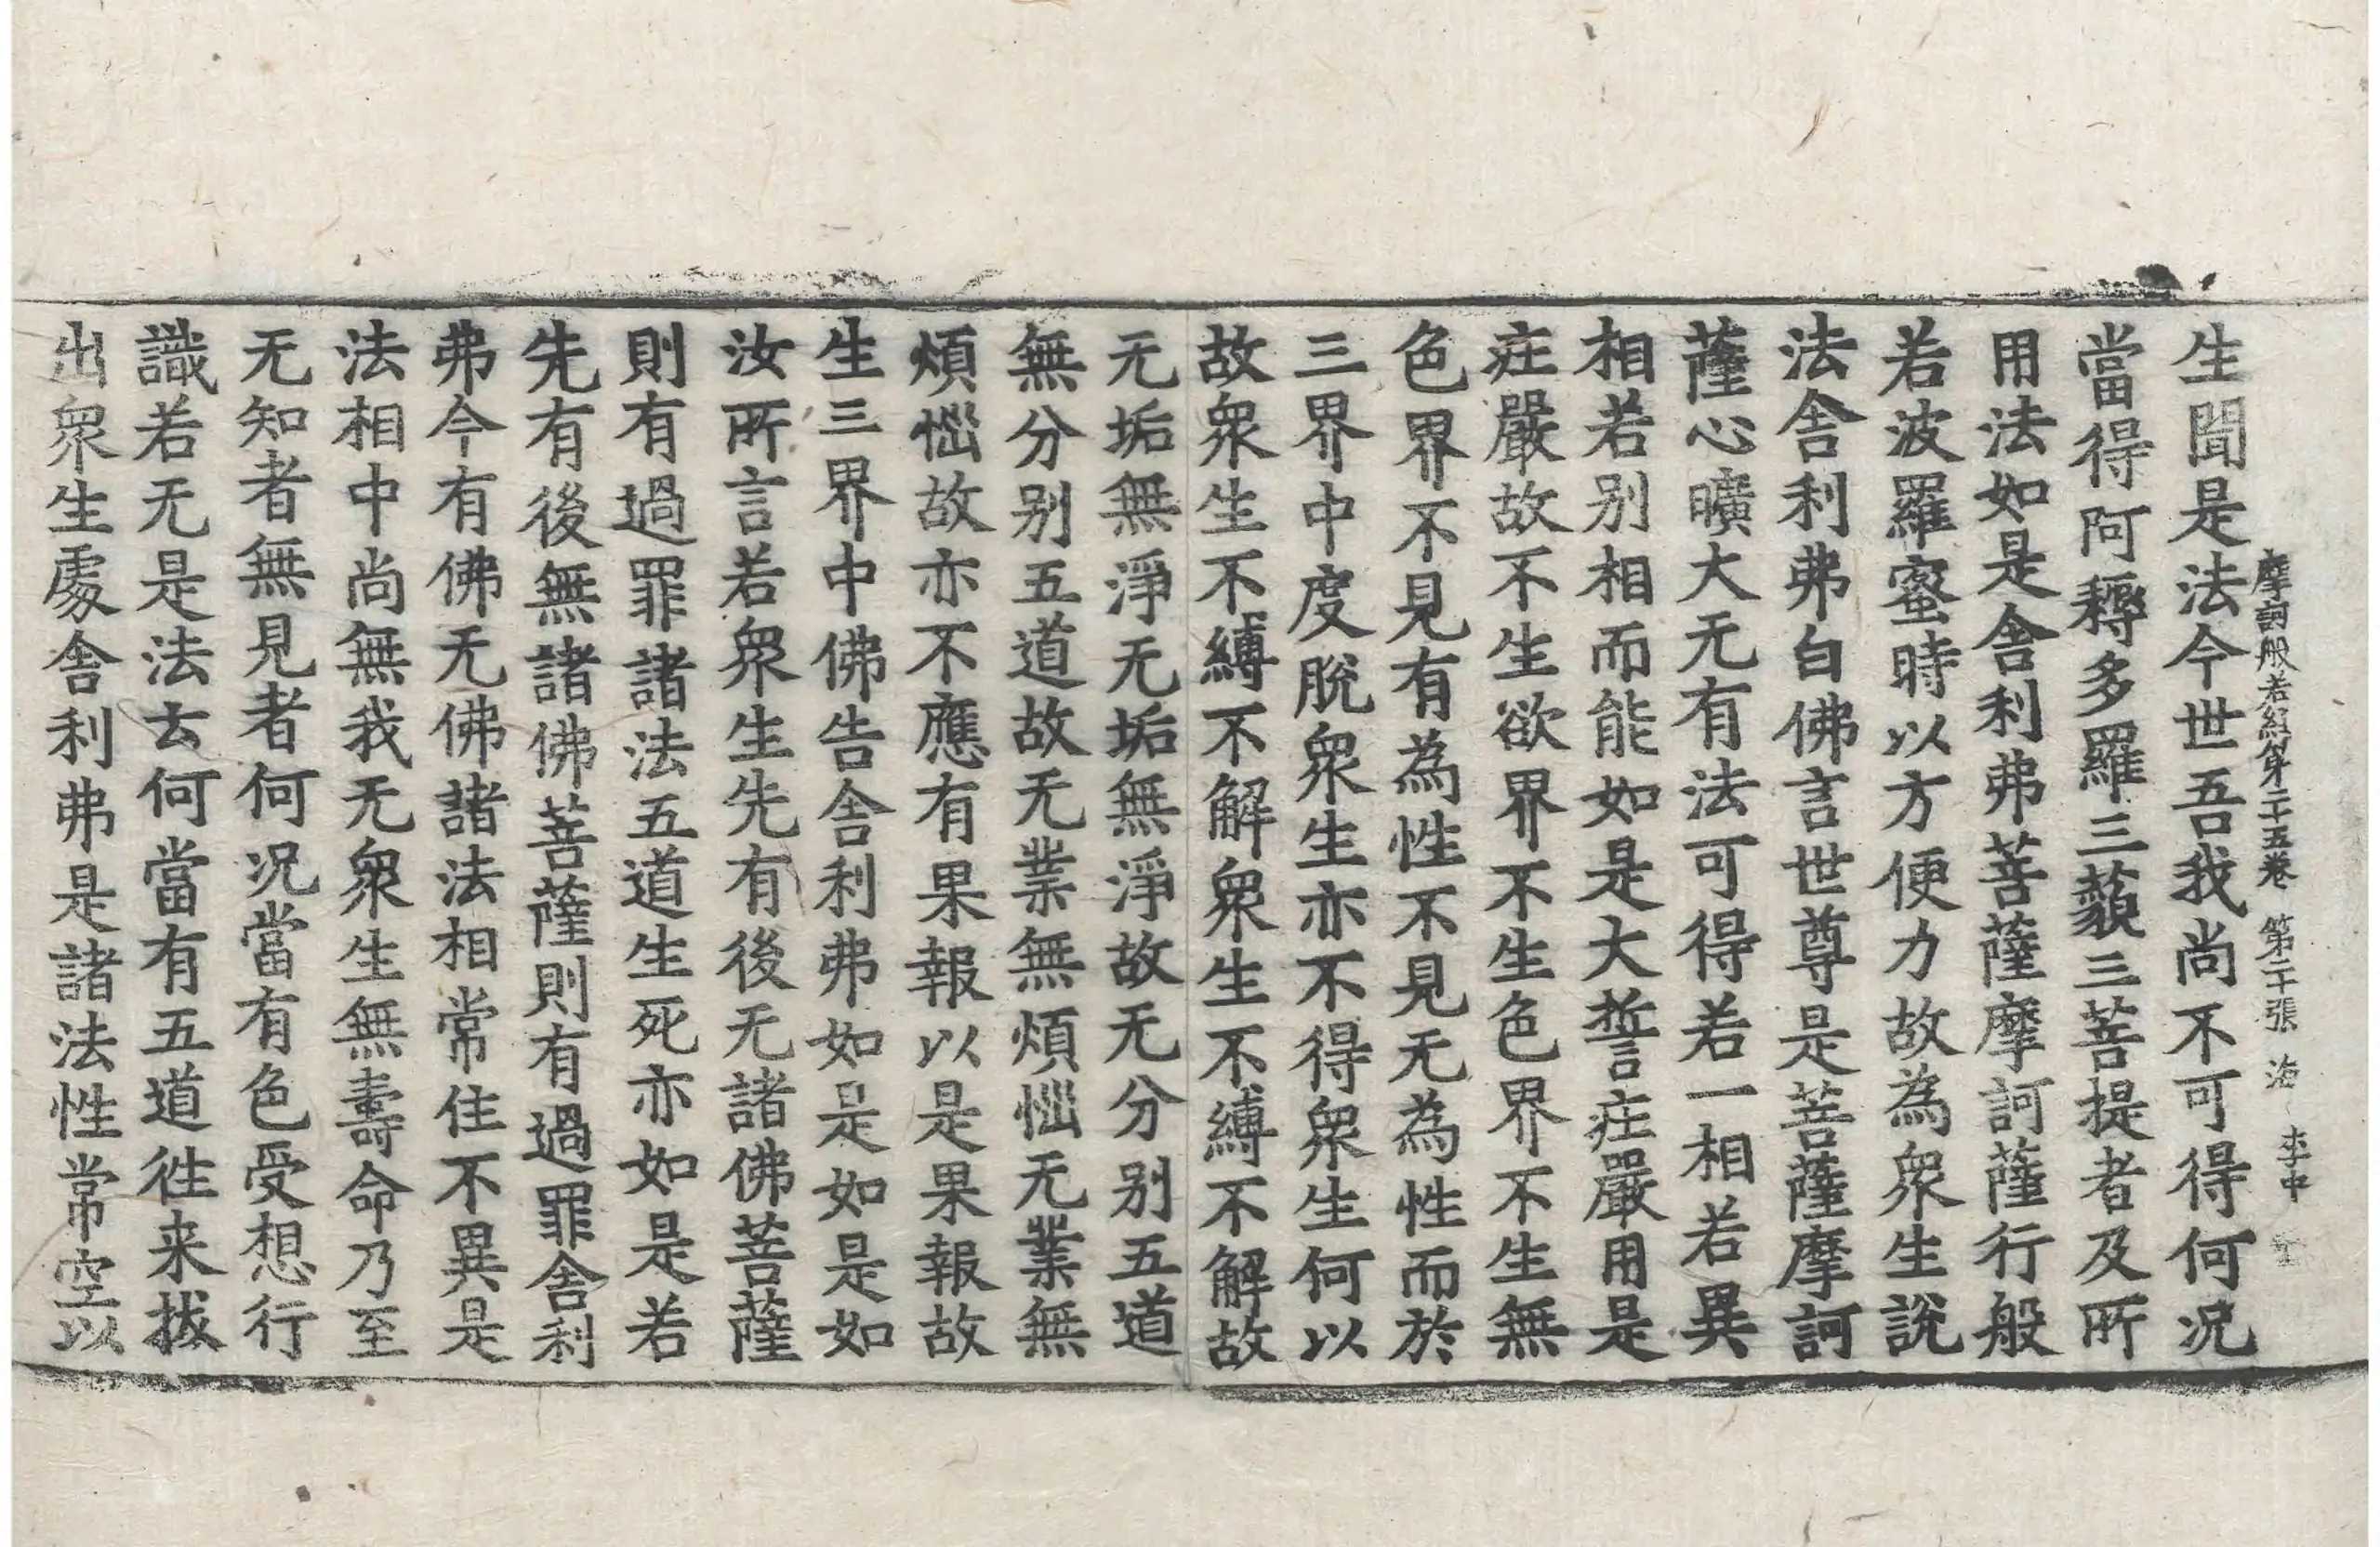 摩訶般若經第二十五卷 第二十張 海 李中
生聞是法今世吾我尚不可得何況
當得阿耨多羅三藐三菩提者及所
用法如是舍利弗菩薩摩訶薩行般
若波羅蜜時以方便力故為衆生說
法舍利弗白佛言世尊是菩薩摩訶
薩心曠大无有法可得若一相若異
相若别相而能如是大誓庄嚴用是
庄嚴故不生欲界不生色界不生無
色界不見有為性不見无為性而於
三界中度脫衆生亦不得衆生何以
故衆生不縛不解衆生不縛不解故
无垢無淨无垢無淨故无分别五道
無分别五道故无業無煩惱无業無
煩惱故亦不應有果報以是果報故
生三界中佛告舍利弗如是如是如
汝所言若衆生先有後无諸佛菩薩
則有過罪諸法五道生死亦如是若
先有後無諸佛菩薩則有過罪舍利
弗今有佛无佛諸法相常住不異是
法相中尚無我无衆生無壽命乃至
无知者無見者何况當有色受想行
識若无是法去何當有五道徃来拔
出衆生處舍利弗是諸法性常空以